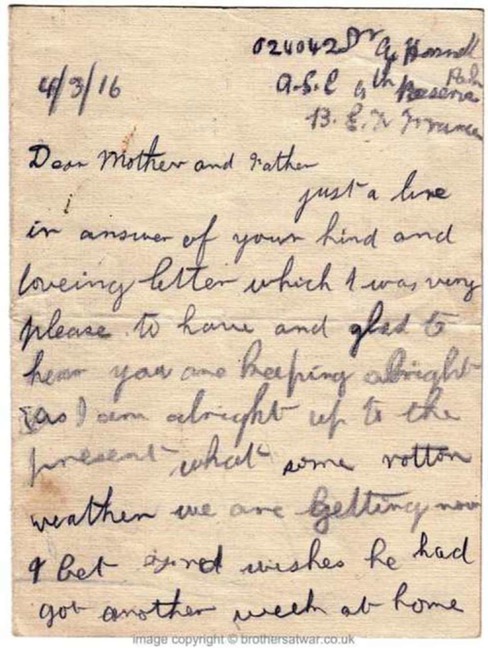 024042 Dr G Horrell
4/3/16
A.S.C 4th Reserve Park
B.E.F France
Dear Mother and Father
just a line
in answer of your kind and
loveing letter which I was very
please to have and glad to
hear you are keeping alright
as I am alright up to the
present what some rotton
weather we are getting now
I bet wishes he had
got another week at home
image copyright © brothersatwar.co.uk